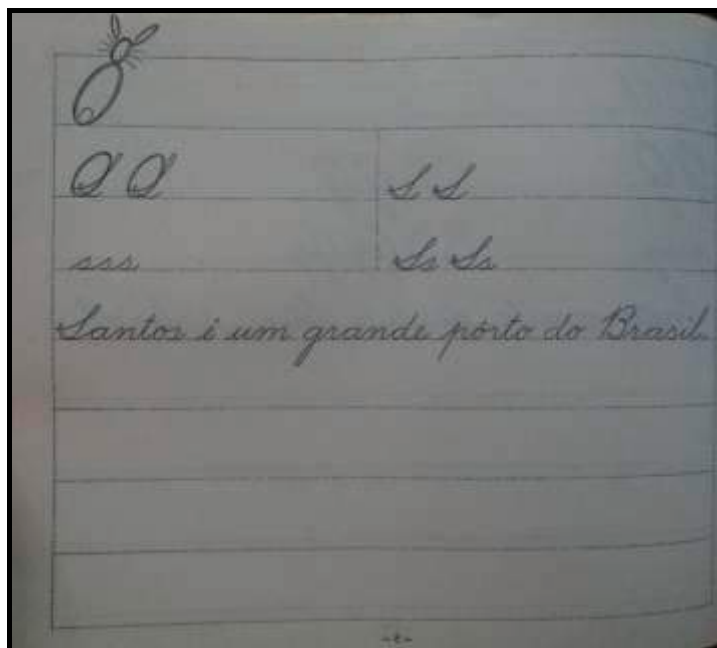 S S
sss
Ss Ss
Santos é um grande pôrto do Brasil.